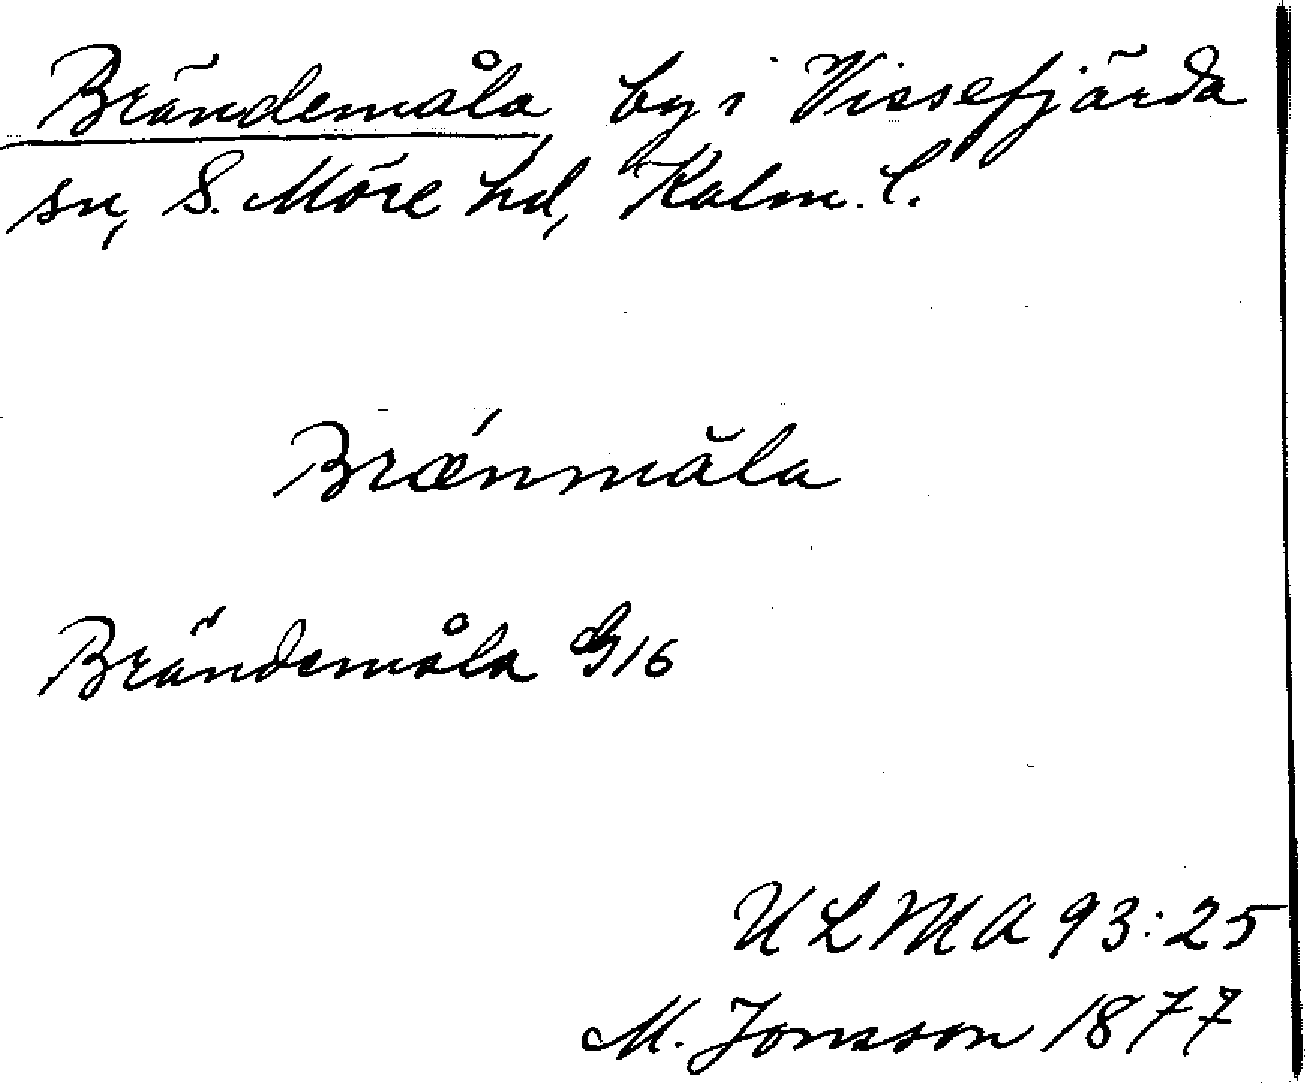 Brändemåla, by i Vissefjärda
sn, S. Möre hd, Kalm. l.
Brǽnmăla
Brändemåla G16
ULMA 93:25
M. Jonsson 1877